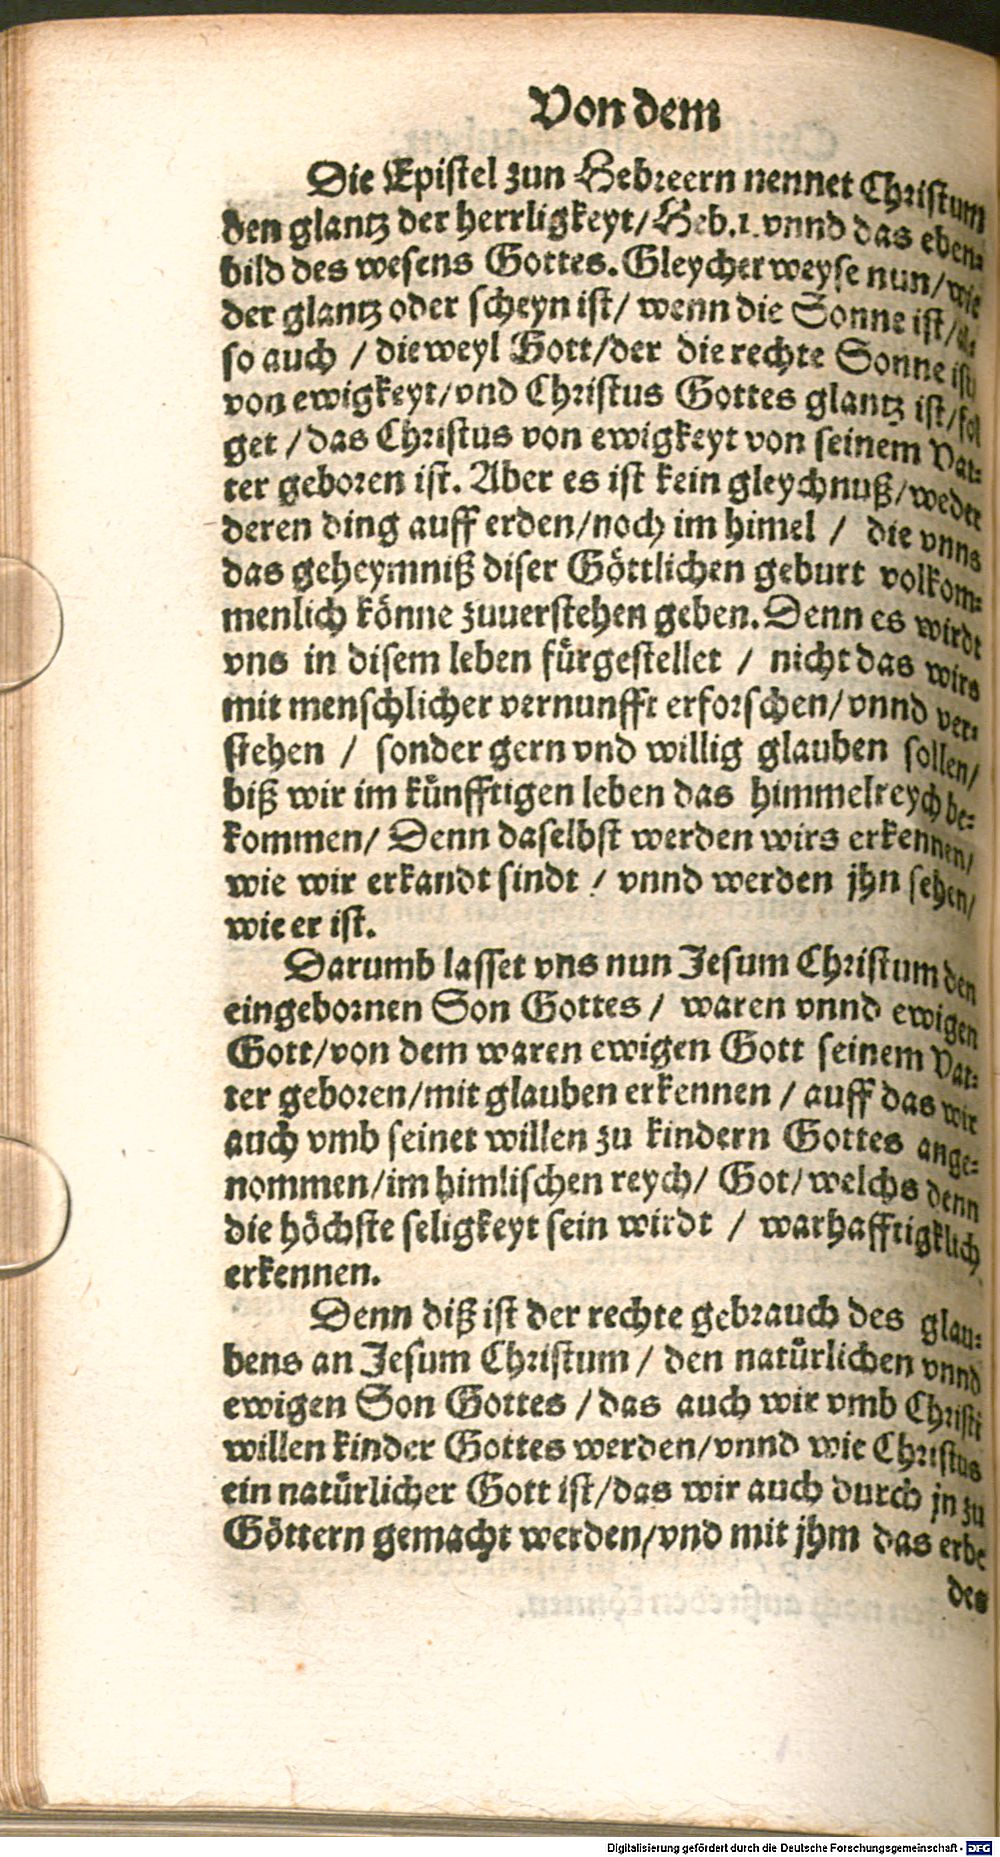 Von dem
Die Epistel zun Hebreern nennet Christum
den glantz der herrligkeyt/Heb.1. vnnd das eben-
bild des wesens Gottes. Gleycher weyse nun/wie
der glantz oder scheyn ist/ wenn die Sonne ist/al-
so auch / die weyl Gott/der die rechte Sonne ist/
von ewigkeyt/vnd Christus Gottes glantz ist/fol
get /das Christus von ewigkeyt von seinem Vat-
ter geboren ist. Aber es ist kein gleychnuß/weder
deren ding auff erden/noch im himel / die vnns
das geheymniß diser Göttlichen geburt volkom-
menlich könne zuuerstehen geben. Denn es wirdt
vns in disem leben fürgestellet / nicht das wirs
mit menschlicher vernunfft erforschen/vnnd ver-
stehen / sonder gern vnd willig glauben sollen/
biß wir im künfftigen leben das himmelreych be-
kommen/ Denn daselbst werden wirs erkennen/
wie wir erkandt sindt / vnnd werden jhn sehen/
wie er ist.
Darumb lasset vns nun Jesum Christum den
eingebornen Son Gottes / waren vnnd ewigen
Gott/von dem waren ewigen Gott seinem Vat-
ter geboren/mit glauben erkennen / auff das wir
auch vmb seinet willen zu kindern Gottes ange-
nommen/im himlischen reych/ Got/welchs denn
die höchste seligkeyt sein wirdt / warhafftigklich
erkennen.
Denn diß ist der rechte gebrauch des glau-
bens an Jesum Christum / den natürlichen vnnd
ewigen Son Gottes /das auch wir vmb Christi
willen kinder Gottes werden/vnnd wie Christus
ein natürlicher Gott ist/das wir auch durch jn zu
Göttern gemacht werden/vnd mit jhm das erbe
des
Digitalisierung gefördert durch die Deutsche Forschungsgemeinschaft - DFG